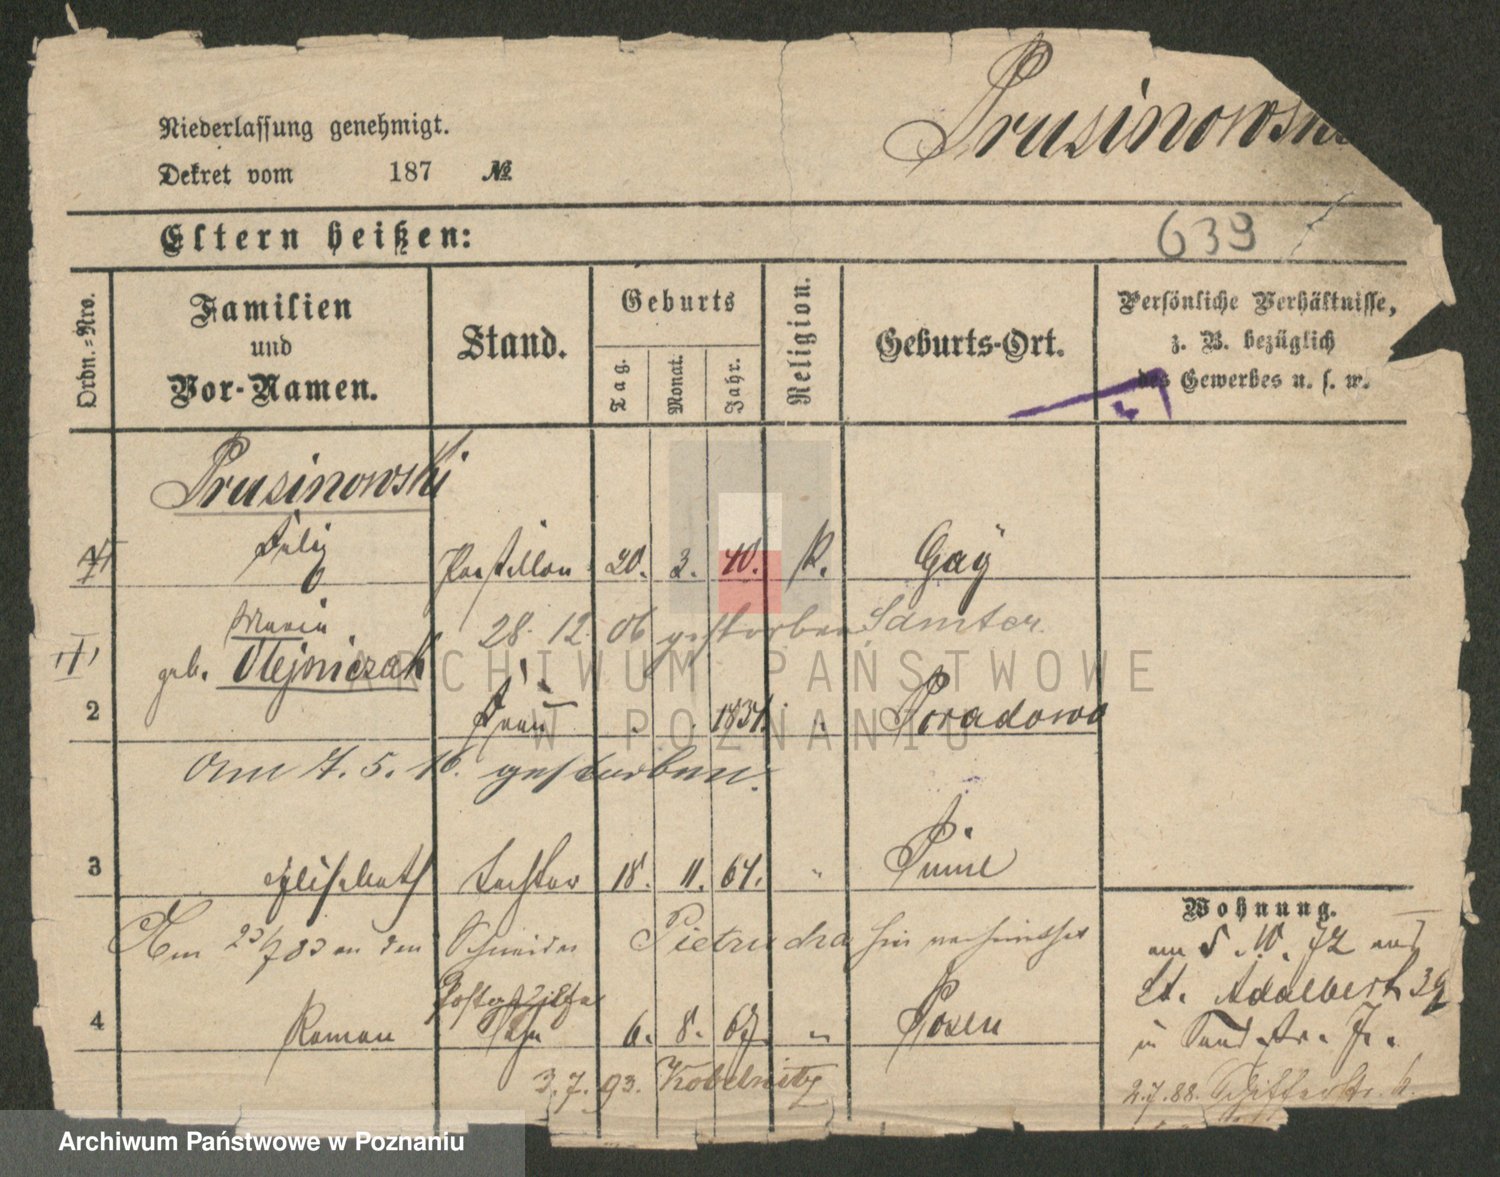 Prusinowski
Niederlassung genehmigt.
Dekret vom 187 №
Eltern heißen:
639
Ordn.=Nro.
Familien
und
Vor-Namen.
Stand.
Geburts
Tag.
Monat.
Jahr.
Religion.
Geburts-Ort.
Persönliche Verhältnisse,
z. B. bezüglich
des Gewerbes u. s. w.
Prusinowski
1 Felix Postillon 20. 3. 40. k. Gay
Maria 28. 12. 06 gestorben Samter.
geb. Olejniczak
2 Frau 1834. " Poradowo
Am 7. 5. 16. gestorben.
3 Elisabeth Tochter 18. 11. 64. " Pinne
Am 23/7 83 an den Schneider Pietrucha hier verheirathet
Postgehilfe
4 Roman Sohn 6. 8. 67. " Posen
3. 7. 93. Kobelnitz
Wohnung.
am 5. 10. 72 aus
St. Adalbert 39
in Sandstr. 7.
2. 7. 88. Schifferstr.
ARCHIWUM PAŃSTWOWE
W POZNANIU
Archiwum Państwowe w Poznaniu